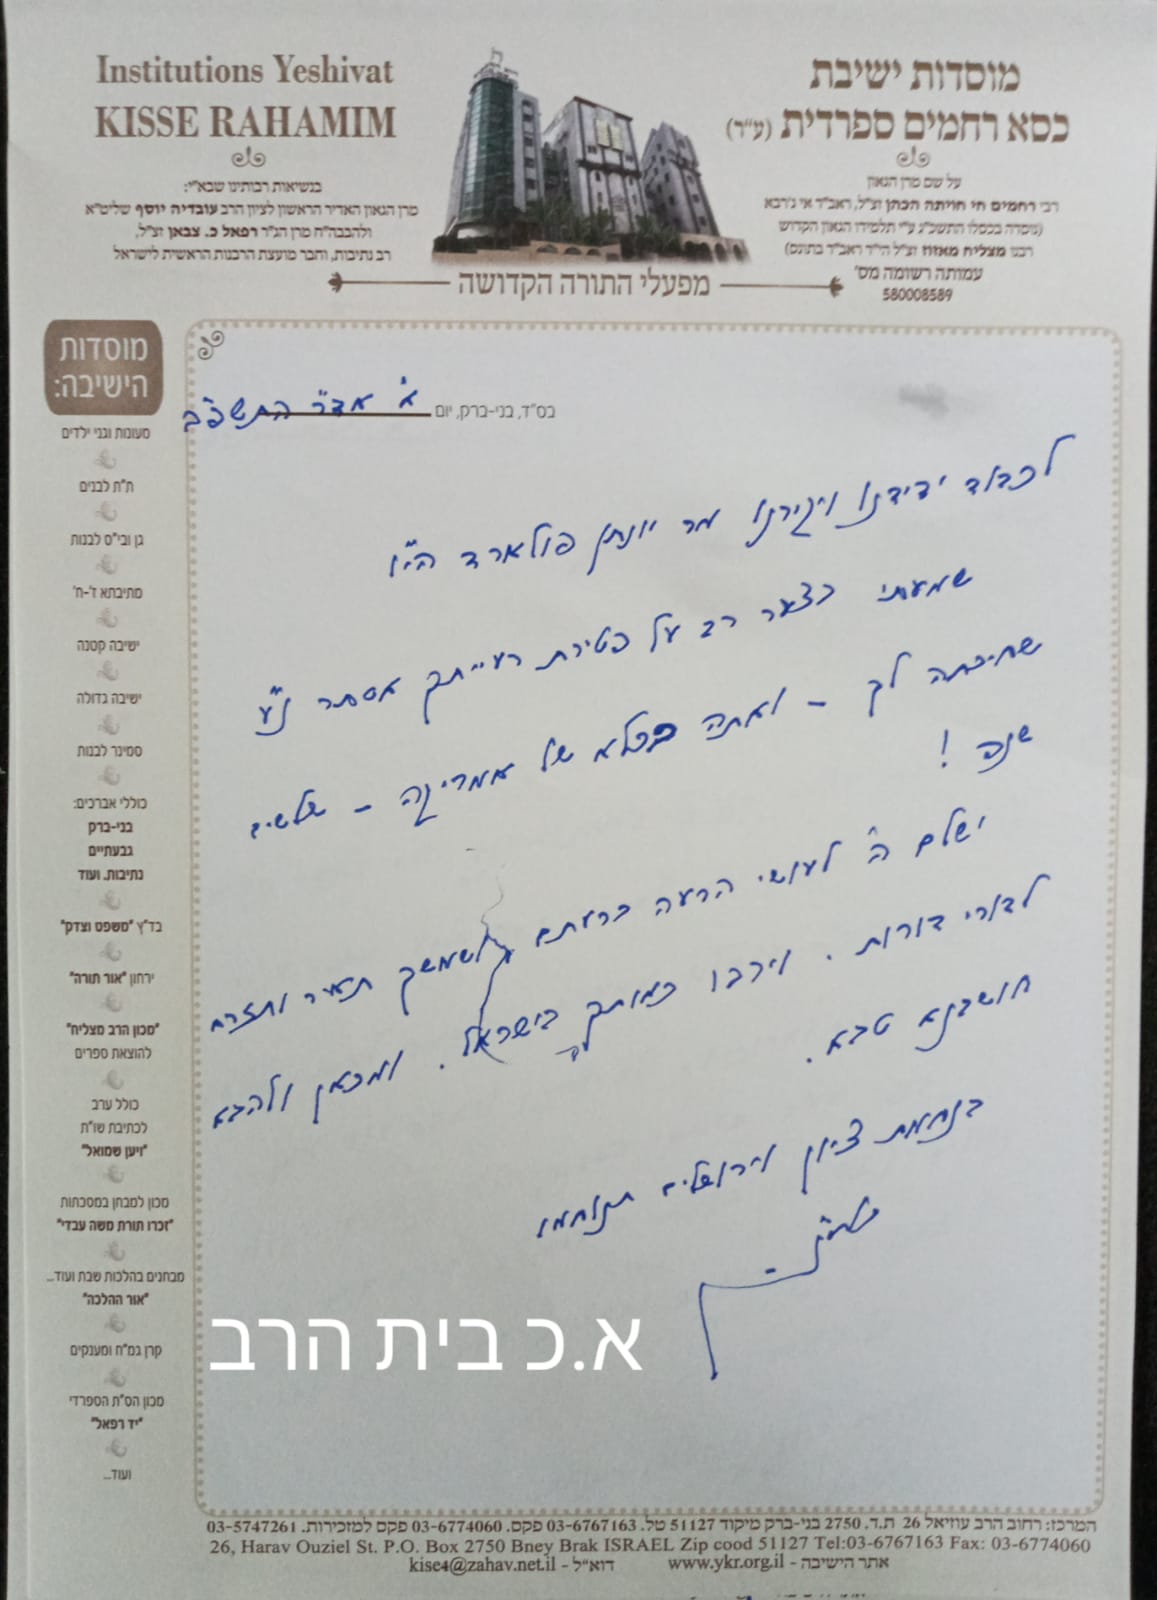 Institutions Yeshivat
KISSE RAHAMIM
בנשיאות רבותינו שבא"י:
מרן הגאון האדיר הראשון לציון הרב עובדיה יוסף שליט"א
ולהבבה"ח מרן הג"ר רפאל כ. צבאן זצ"ל,
רב נתיבות, וחבר מועצת הרבנות הראשית לישראל
מוסדות ישיבת
כסא רחמים ספרדית (ע"ר)
על שם מרן הגאון
רבי רחמים חי חויתה הכהן זצ"ל, ראב"ד אי ג'רבא
(נוסדה בכסלו התשכ"ג ע"י תלמידו הגאון הקדוש
רבנו מצליח מאזוז זצ"ל הי"ד ראב"ד בתונס)
עמותה רשומה מס'
580008589
מפעלי התורה הקדושה
מוסדות
הישיבה:
מעונות וגני ילדים
ת"ת לבנים
גן ובי"ס לבנות
מתיבתא ז'-ח'
ישיבה קטנה
ישיבה גדולה
סמינר לבנות
כוללי אברכים:
בני-ברק
גבעתיים
נתיבות. ועוד
בד"ץ "משפט וצדק"
ירחון "אור תורה"
"מכון הרב מצליח"
להוצאת ספרים
כולל ערב
לכתיבת שו"ת
"ויען שמואל"
מכון למבחן במסכתות
"זכרו תורת משה עבדי"
מבחנים בהלכות שבת ועוד...
"אור ההלכה"
קרן גמ"ח ומענקים
מכון הס"ת הספרדי
"יד רפאל"
ועוד...
בס"ד, בני-ברק, יום א' אד"ר התשפ"ב
לכבוד ידידנו ויקירנו מר יונתן פולארד הי"ו
שמעתי בצער רב על פטירת רעייתך אסתר נ"ע
שחיכתה לך - ואתה בכלא של אמריקה - שלשים
שנה !
ישלם ה' לעושי הרעה כרעתם ושמשך תאיר ותזרח
לדורי דורות . וירבו כמותך בישראל . ומכאן ולהבא
חושבנא טבא .
בנחמת ציון וירושלים תנוחמו
א.כ בית הרב
המרכז: רחוב הרב עוזיאל 26 ת.ד. 2750 בני-ברק מיקוד 51127 טל. 03-6767163 פקס. 03-6774060 פקס למזכירות. 03-5747261
26, Harav Ouziel St. P.O. Box 2750 Bney Brak ISRAEL Zip cood 51127 Tel:03-6767163 Fax: 03-6774060
אתר הישיבה - www.ykr.org.il דוא"ל - kise4@zahav.net.il